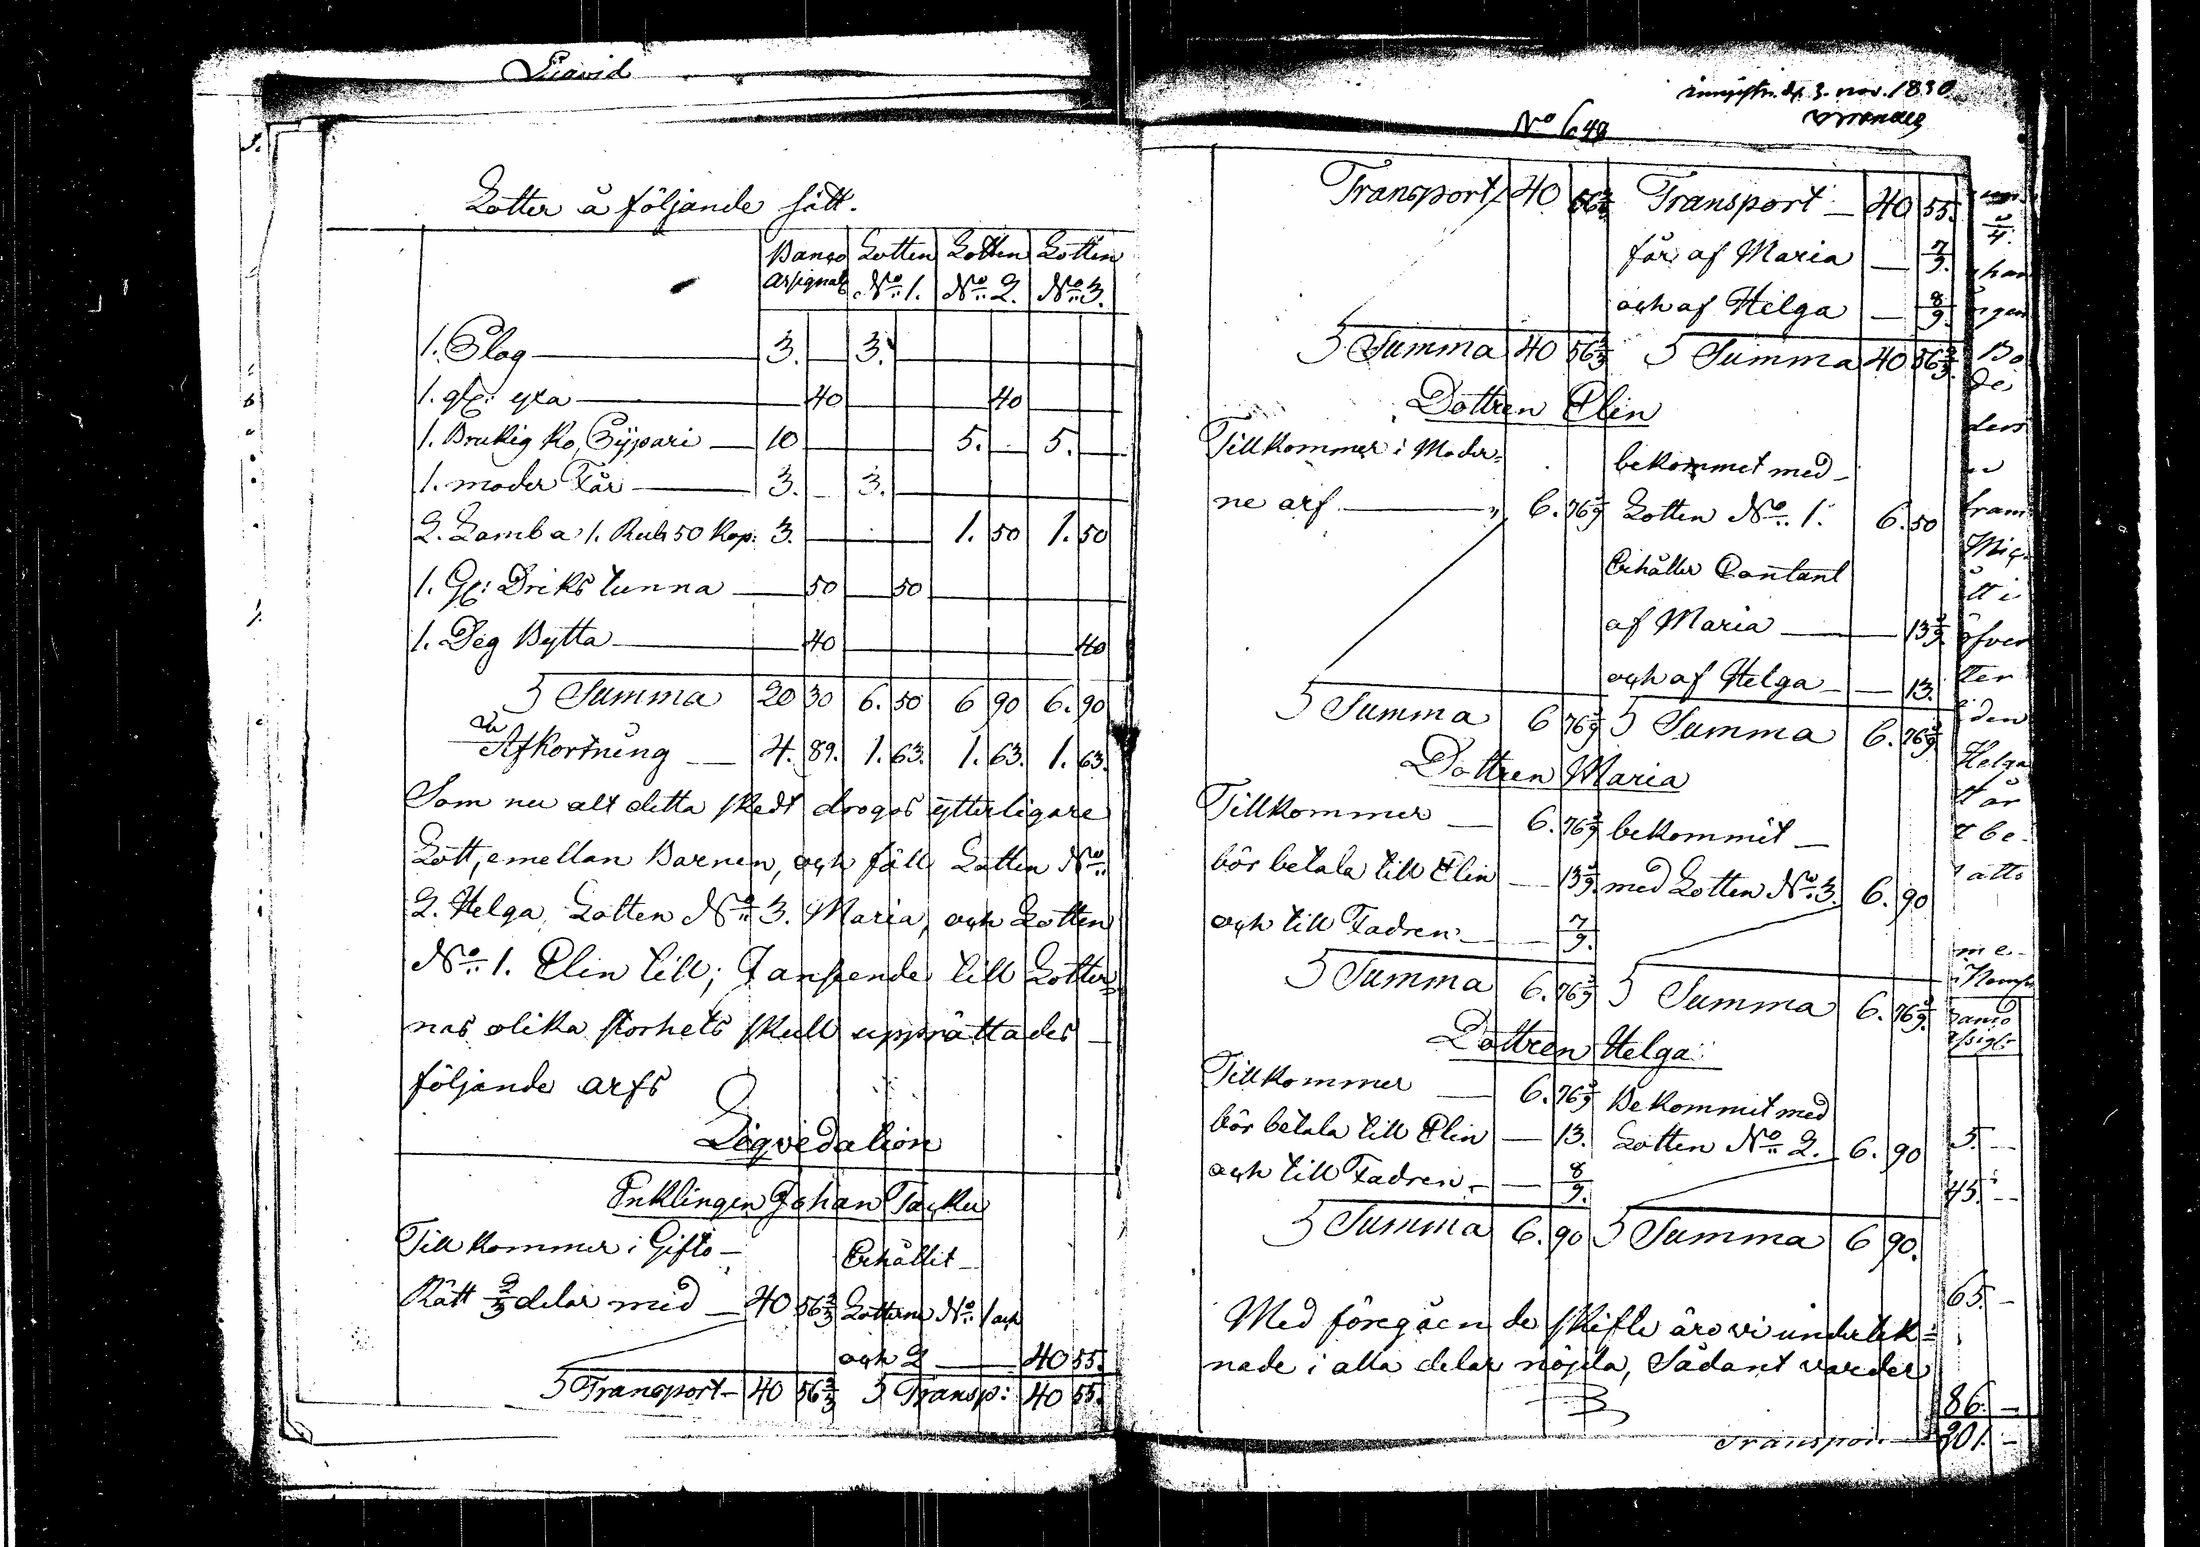 Lotter å följande sätt.
Banco Lotten Lotten Lotten
Assignats No 1. No 2. No 3.
1. Slog 3. 3.
1. yxa 40 40
1. Brukig Ko, Sypari 10 5. 5.
1. moder Får 3. 3.
2. Lamb a 1. Rub 50 Kop: 3. 1. 50 1. 50
1. Gl: Driks tunna 50 50
1. Deg Bytta 40 40
Summa 20 30 6. 50 6 90 6. 90
Afkortning 4. 89. 1. 63. 1. 63. 1. 63.
Som nu alt detta skedt drogos ytterligare
Lott, emellan Barnen, och föll Lotten No
2. Helga, Lotten No 3. Maria, och Lotten
No 1. Elin till; I anseende till Lotter=
nas olika storhets skull upprättades
följande arfs
Liqvedation
Enklingen Johan
Tillkommer i Gifto Erhållit
Rätt 2/3 delar med 40 56 2/3 Lotterne No 1 och
och 2 40 55.
Transport 40 56 2/3 Transp: 40 55.
No 648
3. nov. 1830
Transport 40 56 2/3 Transport 40 55.
får af Maria 7/9.
och af Helga 8/9.
Summa 40 56 2/3 Summa 40 56 2/3.
Dottren Elin
Tillkommer i Moder= bekommet med
ne arf 6. 76 2/9 Lotten No 1. 6. 50
Erhåller Contant
af Maria 13 2/9
och af Helga 13.
Summa 6 76 2/9 Summa 6. 76 2/9
Dottren Maria
Tillkommer 6. 76 2/9 bekommit
bör betala till Elin 13 2/9. med Lotten No 3. 6. 90
och till Fadren 7/9.
Summa 6. 76 2/9 Summa 6. 76 2/9.
Dottren Helga
Tillkommer 6. 76 2/9 Bekommit med
bör betala till Elin 13. Lotten No 2. 6. 90
och till Fadren 8/9.
Summa 6. 90 Summa 6 90.
Med föregåen de skifte äro vi undertek=
nade i alla delar nöjda, Sådant varder
5.
45.
65.
86.
Transpor 201.